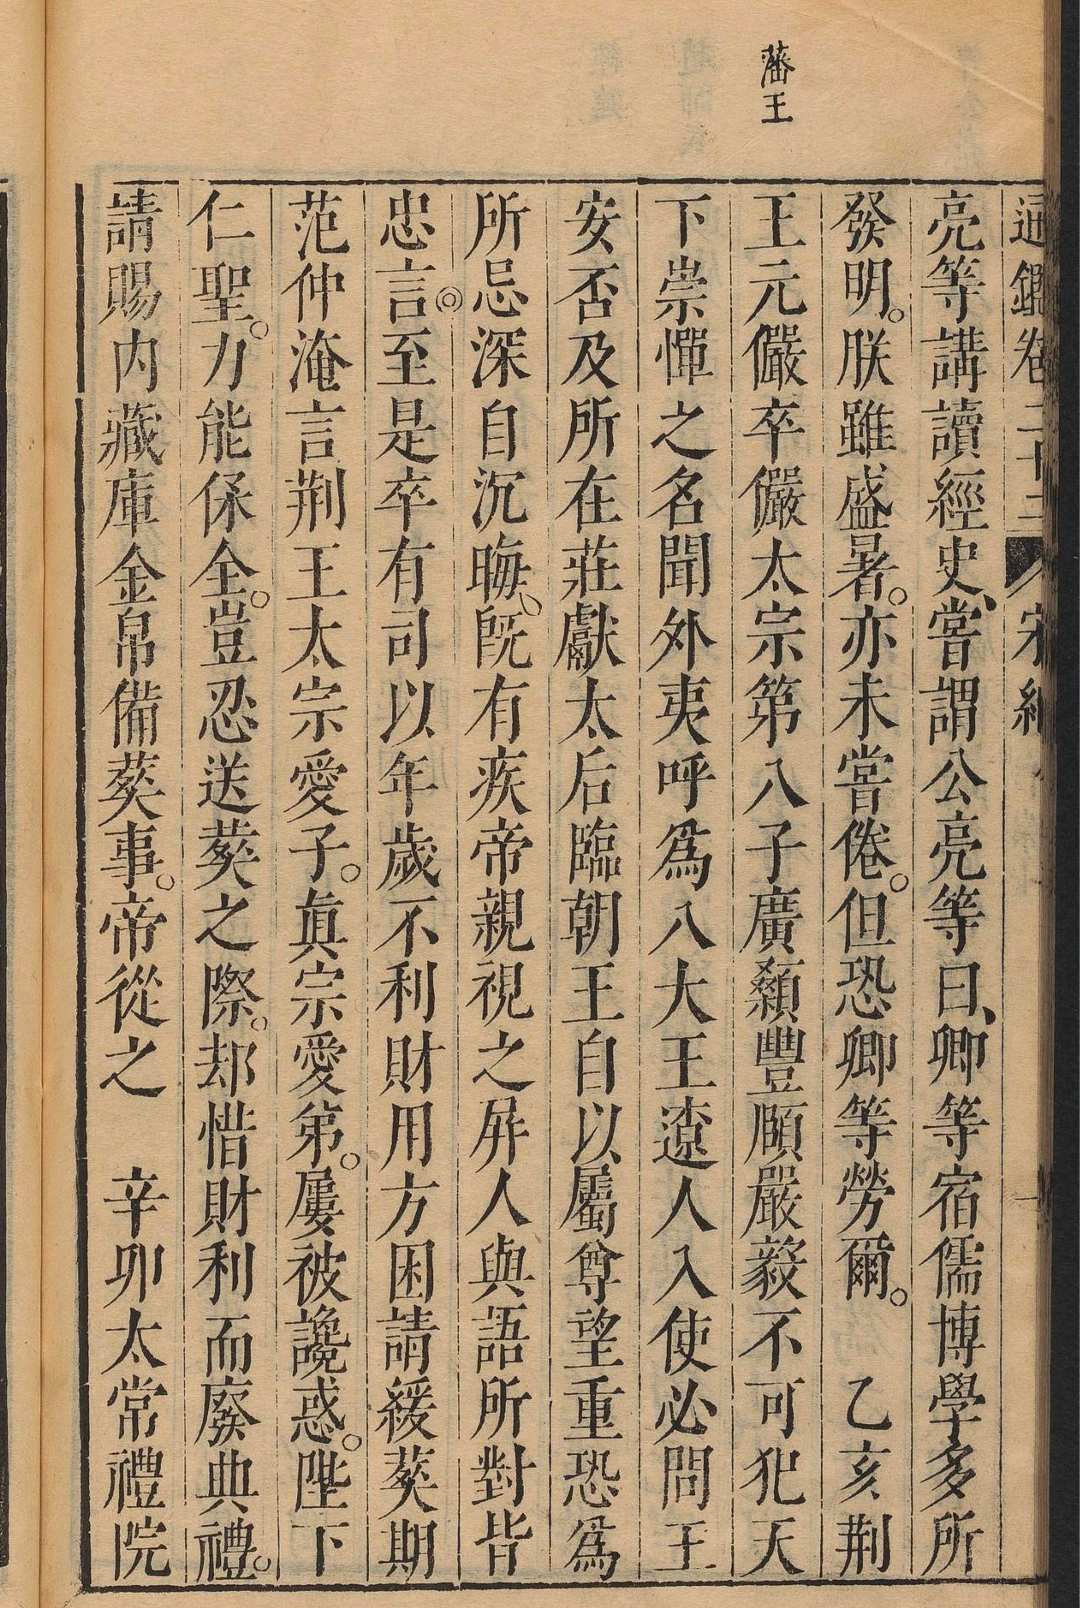 藩王
通鑑卷二十三 宋紀
亮等講讀經史、嘗謂公亮等曰、卿等宿儒博學多所
發明。朕雖盛暑。亦未嘗倦。但恐卿等勞爾。　乙亥荆
王元儼卒儼太宗第八子廣顙豐頤嚴毅不可犯天
下崇憚之名聞外夷呼爲八大王遼人入使必問王
安否及所在莊獻太后臨朝王自以屬尊望重恐爲
所忌深自沉晦、既有疾帝親視之屏人與語所對皆
忠言◎至是卒有司以年歲不利財用方困請緩葬期
范仲淹言荆王太宗愛子。眞宗愛弟。屢被讒惑。陛下
仁聖。力能保全。豈忍送葬之際。却惜財利而廢典禮。
請賜内藏庫金帛備葬事。帝從之　辛卯太常禮院